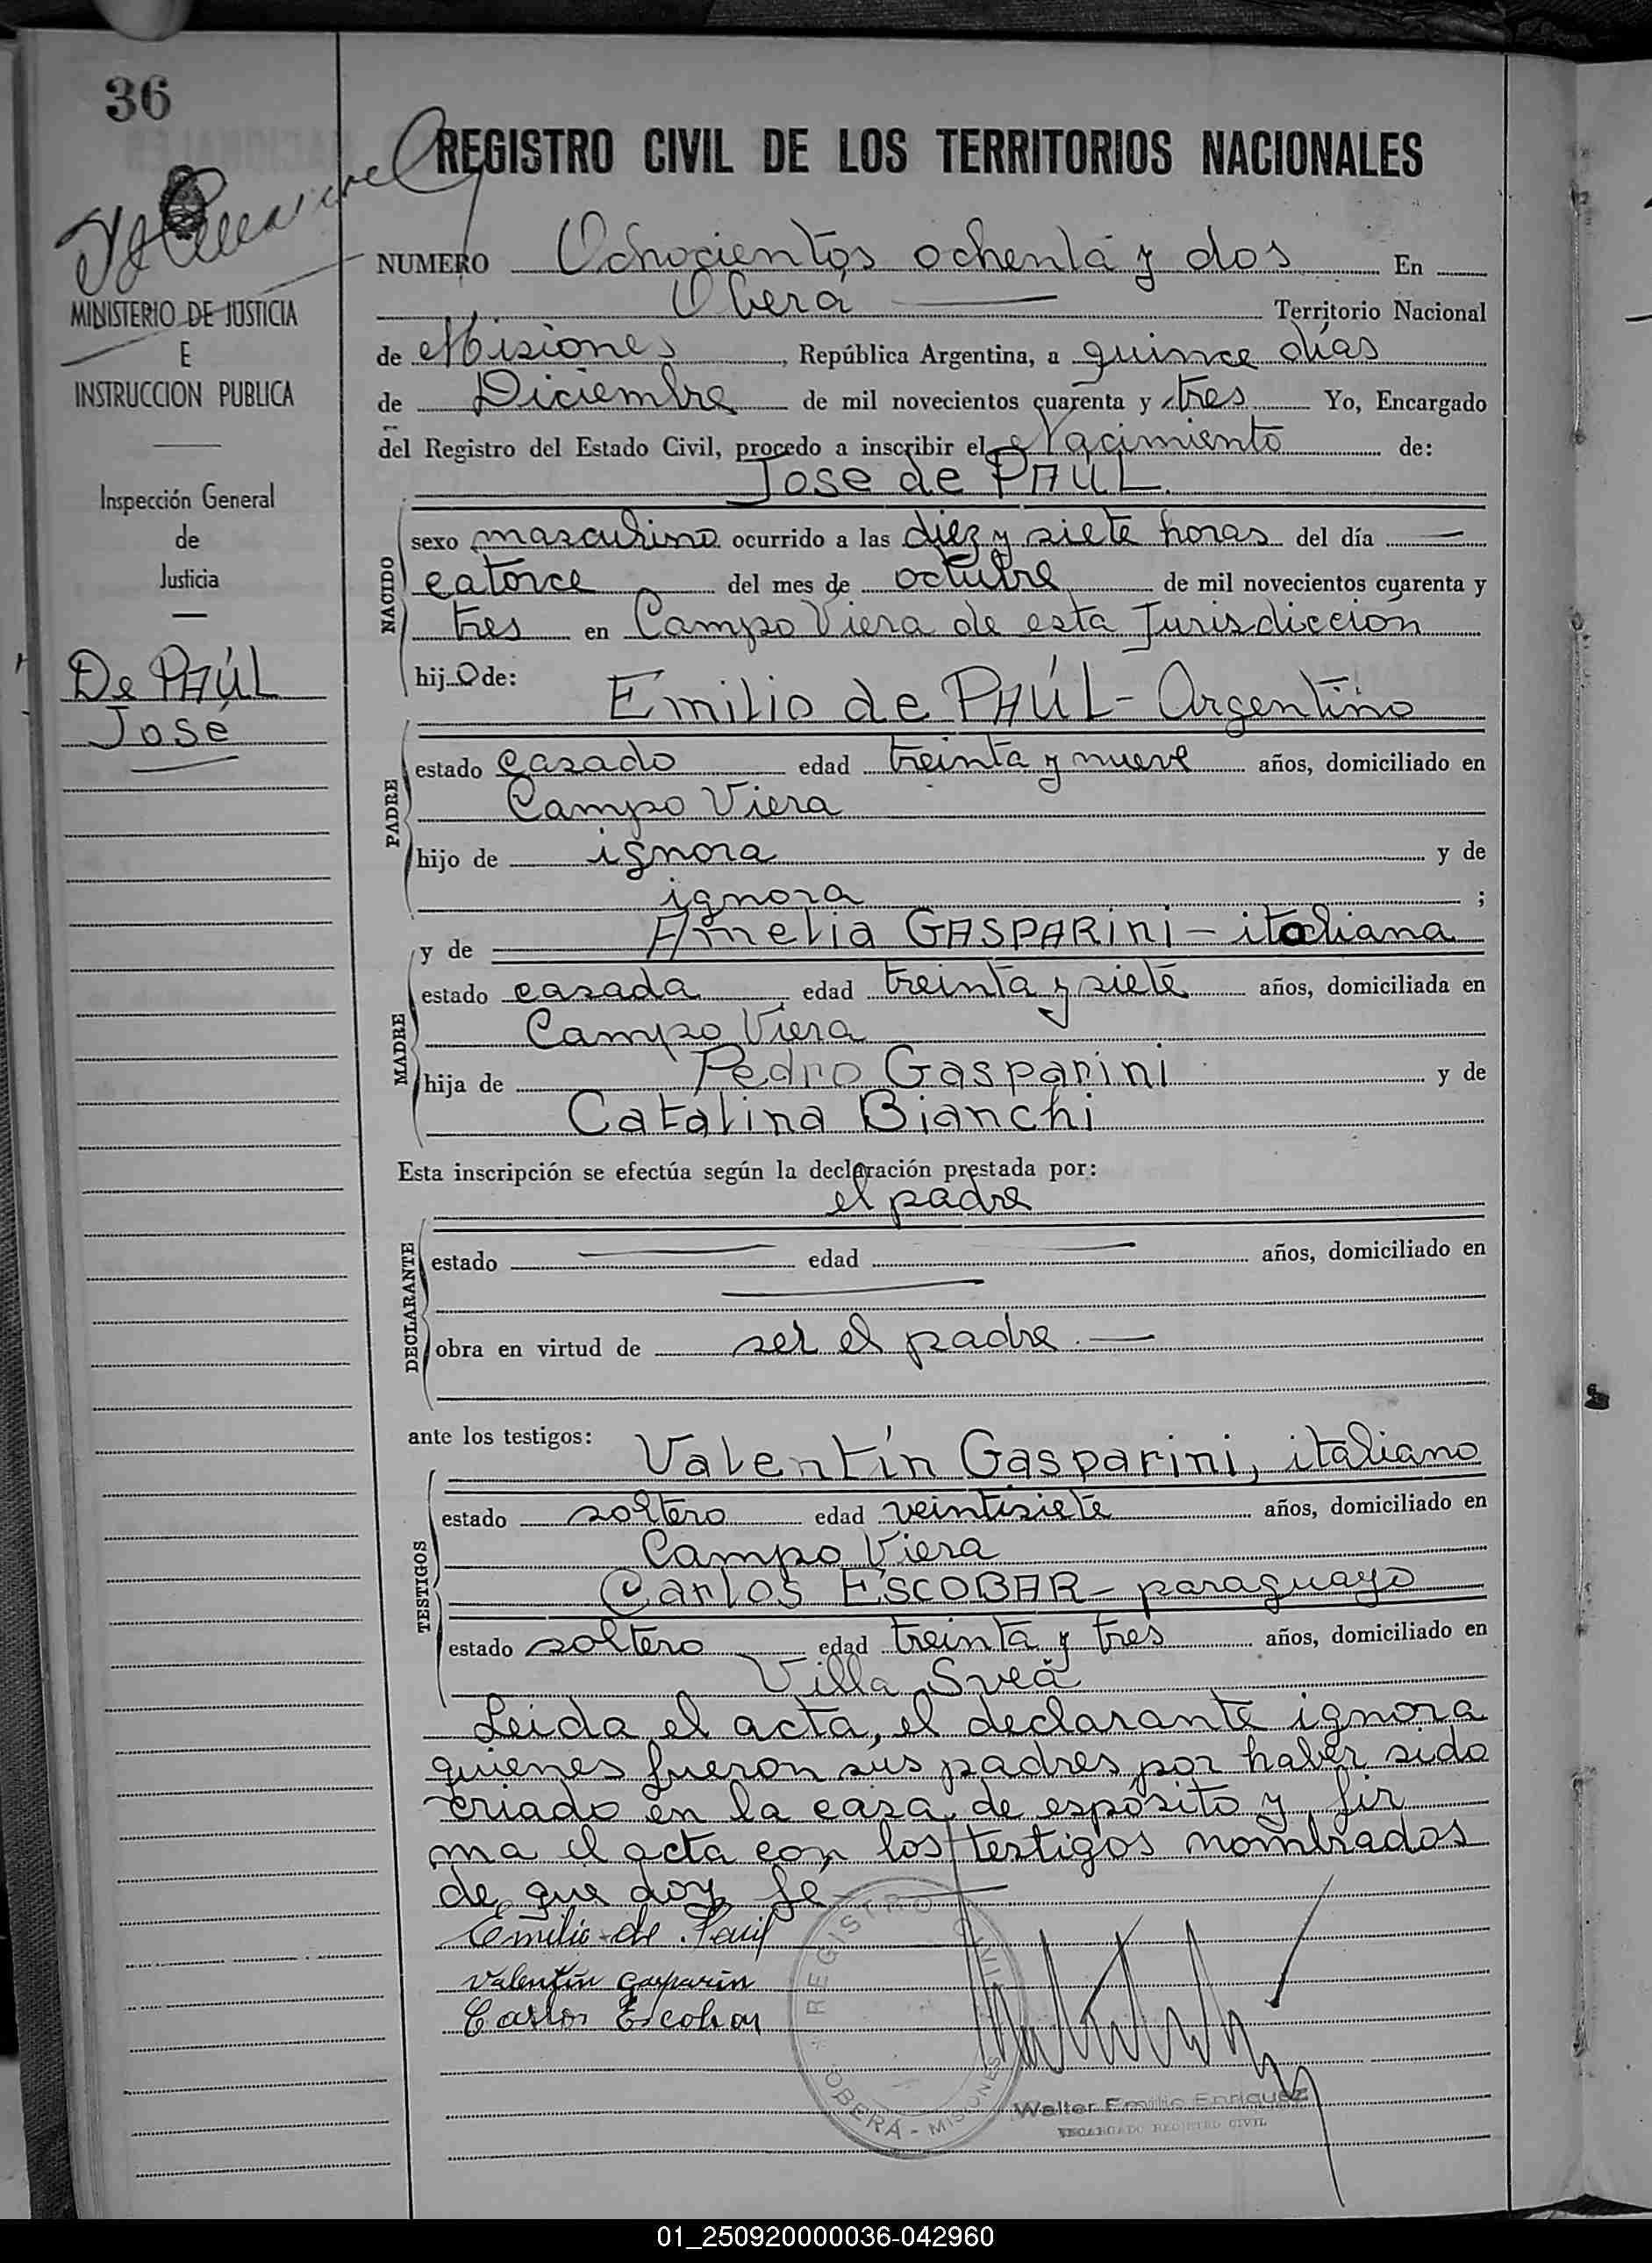 36
REGISTRO CIVIL DE LOS TERRITORIOS NACIONALES
MINISTERIO DE JUSTICIA
E
INSTRUCCION PUBLICA
Inspección General
de
Justicia
De PAÚL
José
NUMERO Ochocientos ochenta y dos En
Oberá Territorio Nacional
de Misiones, República Argentina, a quince días
de Diciembre de mil novecientos cuarenta y tres Yo, Encargado
del Registro del Estado Civil, procedo a inscribir el Nacimiento de:
José de PAÚL.
NACIDO
sexo masculino ocurrido a las diez y siete horas del día
catorce del mes de octubre de mil novecientos cuarenta y
tres en Campo Viera de esta Jurisdicción
hijo de:
Emilio de PAÚL - Argentino
PADRE
estado casado edad treinta y nueve años, domiciliado en
Campo Viera
hijo de ignora y de
ignora ;
y de Amelia GASPARINI - italiana
MADRE
estado casada, edad treinta y siete años, domiciliada en
Campo Viera
hija de Pedro Gasparini y de
Catalina Bianchi
Esta inscripción se efectúa según la declaración prestada por:
el padre
DECLARANTE
estado edad años, domiciliado en
obra en virtud de ser el padre.
ante los testigos:
Valentín Gasparini, italiano
TESTIGOS
estado soltero edad veintisiete años, domiciliado en
Campo Viera
Carlos ESCOBAR - paraguayo
estado soltero edad treinta y tres años, domiciliado en
Villa Sveá
Leida el acta, el declarante ignora
quienes fueron sus padres por haber sido
criado en la casa de espósito y fir
ma el acta con los testigos nombrados
de que doy fe
Emilio de Paul
Valentín Gasparin
Carlos Escobar
REGISTRO CIVIL
OBERÁ - MISIONES
Walter Emilio Enriquez
ENCARGADO REGISTRO CIVIL
01_250920000036-042960